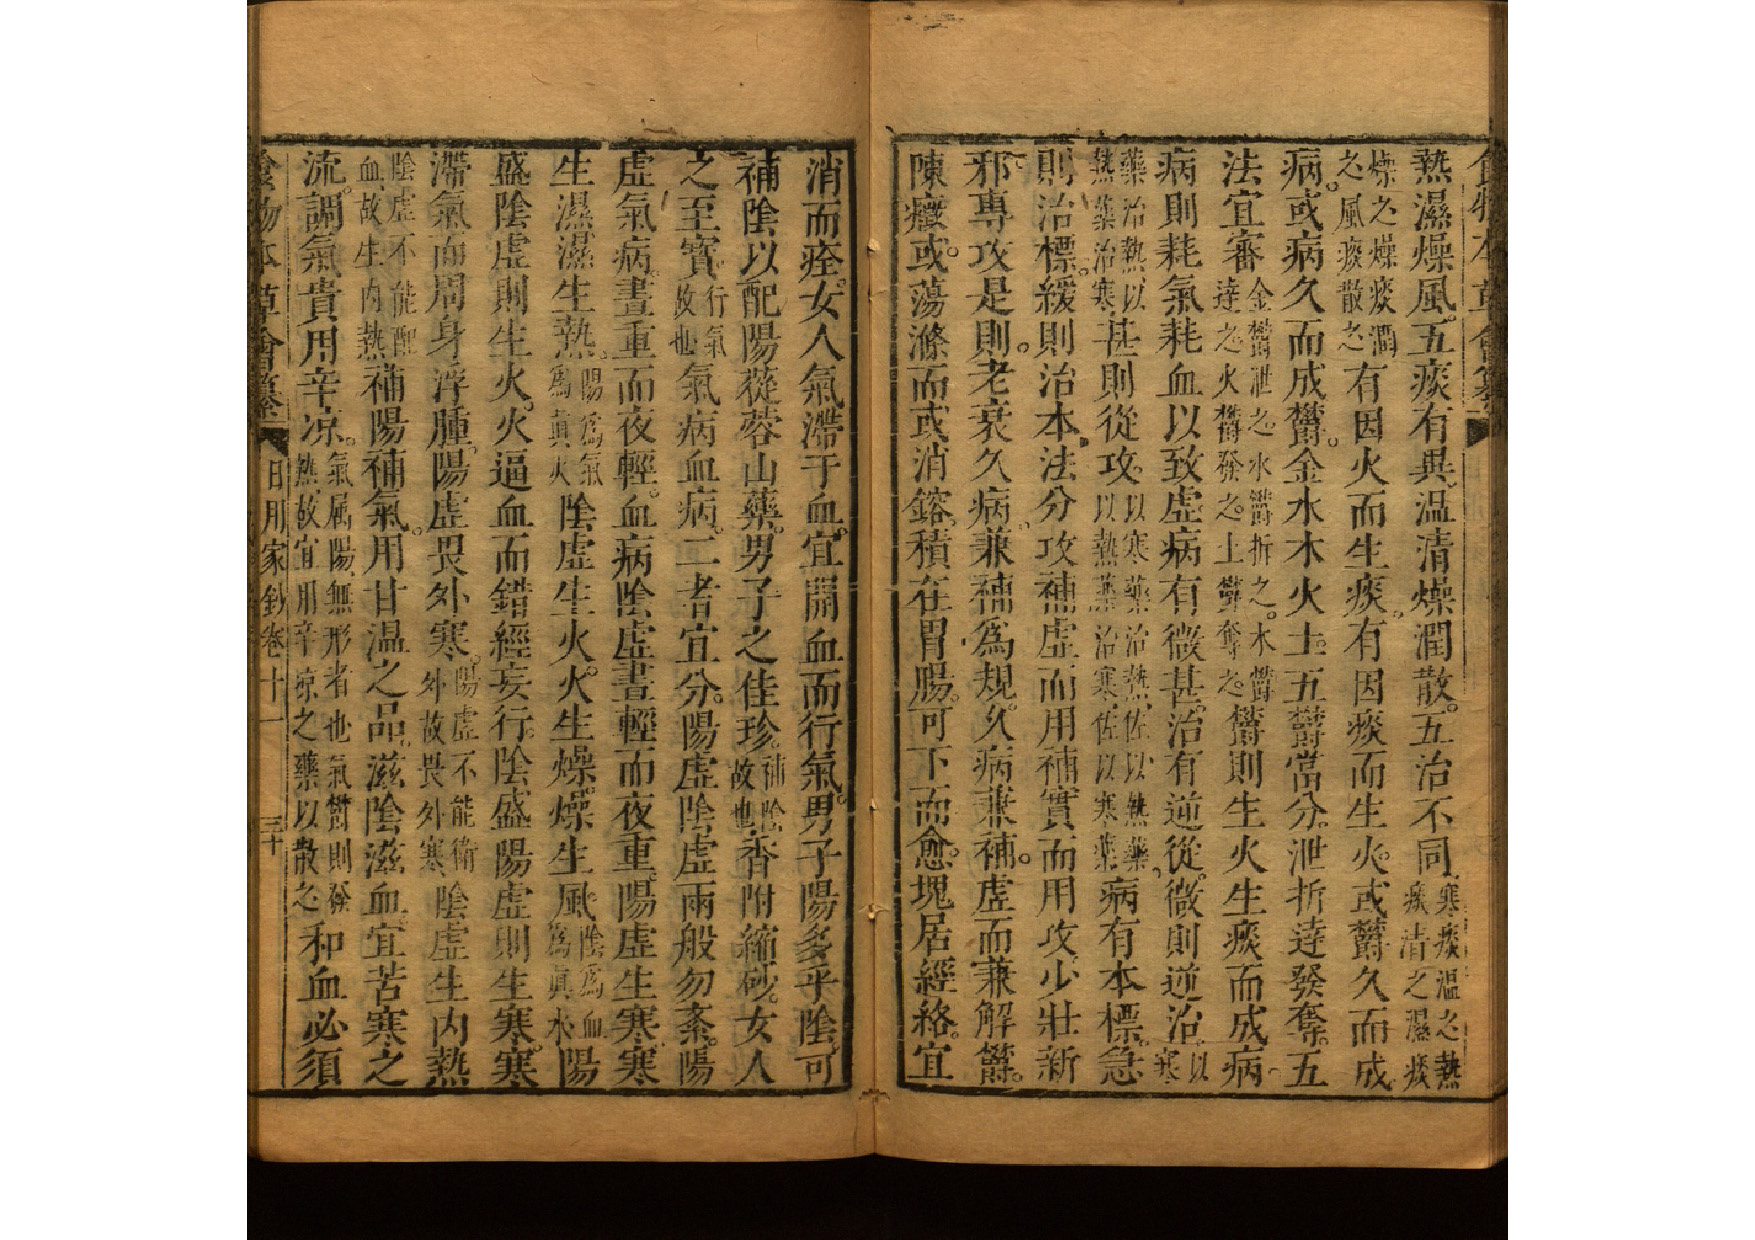 食物本草會纂
熱濕燥風。五痰有異。温清燥潤散。五治不同。寒痰温之熱痰清之濕痰
燥之燥痰潤之風痰散之有因火而生痰。有因痰而生火。或欝久而成
病。或病久而成欝。金水木火土。五欝當分。泄折逹發奪。五
法宜審金欝泄之水欝折之。木欝逹之火欝發之土欝奪之欝則生火生痰而成病。
病則耗氣耗血以致虛病有微甚。治有逆從。微則逆治。以寒
藥治熱以熱藥治寒甚則從攻。以寒藥治熱佐以熱藥以熱藥治寒佐以寒藥病有本標。急
則治標。緩則治本。法分攻補虛而用補實而用攻少壯新
邪。專攻是則。老衰久病。兼補爲規。久病兼補。虛而兼解欝。
陳癥。或蕩滌而或消鎔。積在胃腸。可下而愈。塊居經絡。宜
消而痊。女人氣滯于血。宜開血而行氣。男子陽多乎陰。可
補陰以配陽蓯蓉山藥。男子之佳珍。補陰故也香附縮砂。女人
之至寶。行氣故也氣病血病。二者宜分。陽虛陰虛兩般勿紊。陽
虛氣病。晝重而夜輕。血病陰虛晝輕而夜重。陽虛生寒。寒
生濕濕生熱。陽爲氣爲眞火陰虛生火。火生燥。燥生風陰爲血爲眞水陽
盛陰虛則生火。火逼血而錯經妄行。陰盛陽虛則生寒。寒
滯氣而周身浮腫。陽虛畏外寒。陽虛不能衛外故畏外寒陰虛生内熱
陰虛不能配血故生内熱補陽補氣。用甘温之品。滋陰滋血宜苦寒之
流。調氣貴用辛凉。氣属陽無形者也氣欝則發熱故宜用辛凉之藥以散之和血必須
食物本草會纂
日用家鈔卷十一
三十